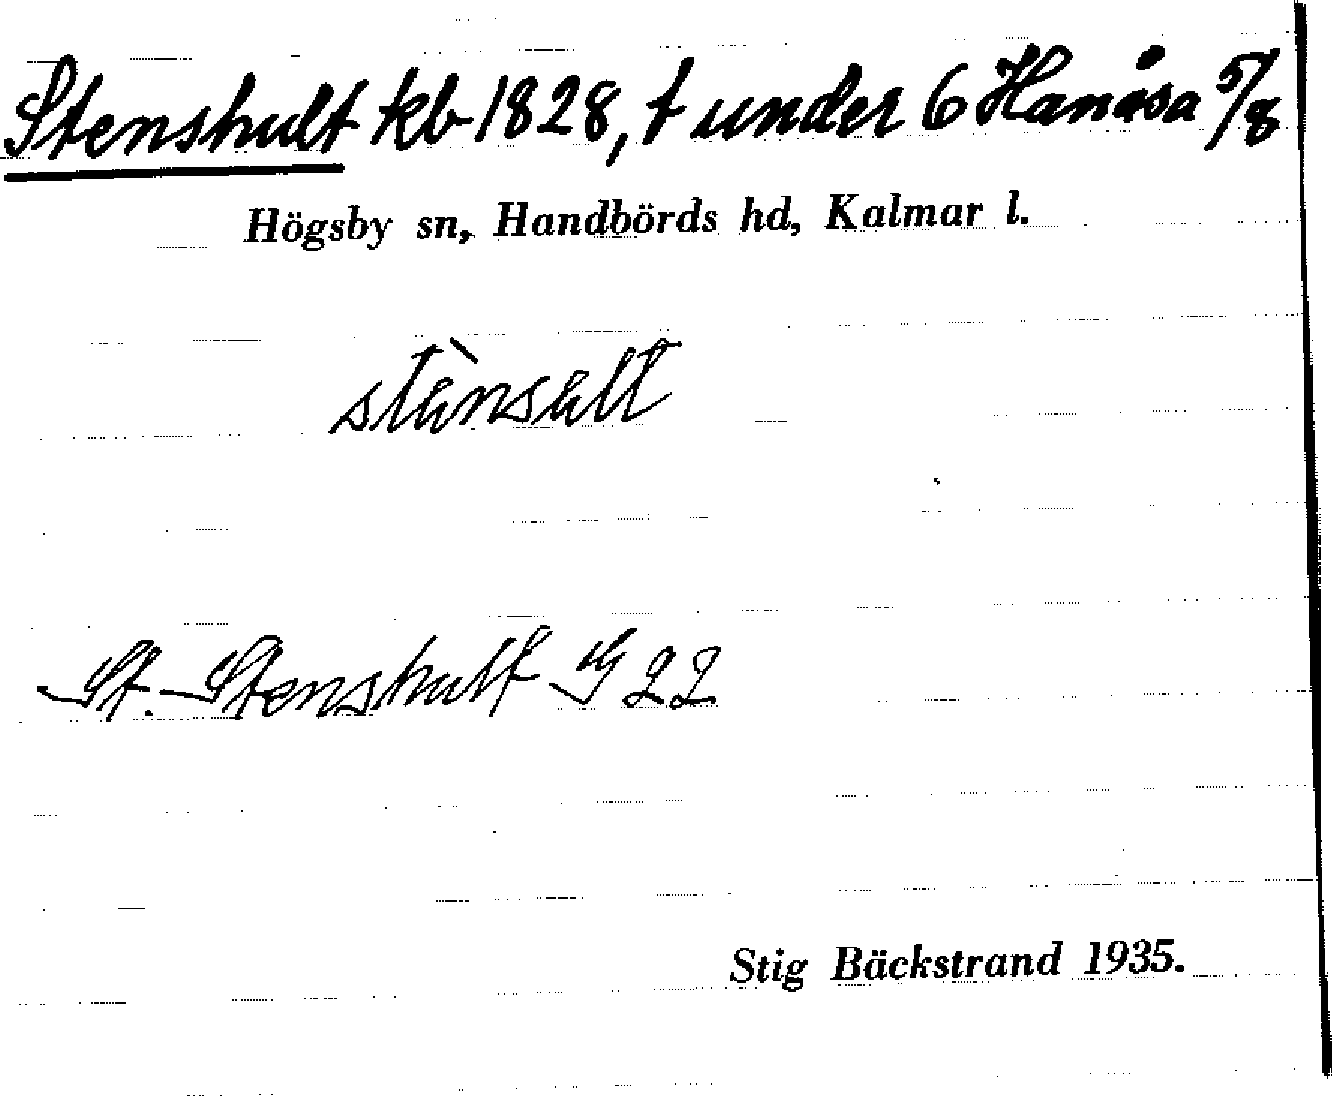 Stenshult kb 1828, t under 6 Hanåsa 5/8
Högsby sn, Handbörds hd, Kalmar l.
stὲnsult
St. Stenshult G 22
Stig Bäckstrand 1935.